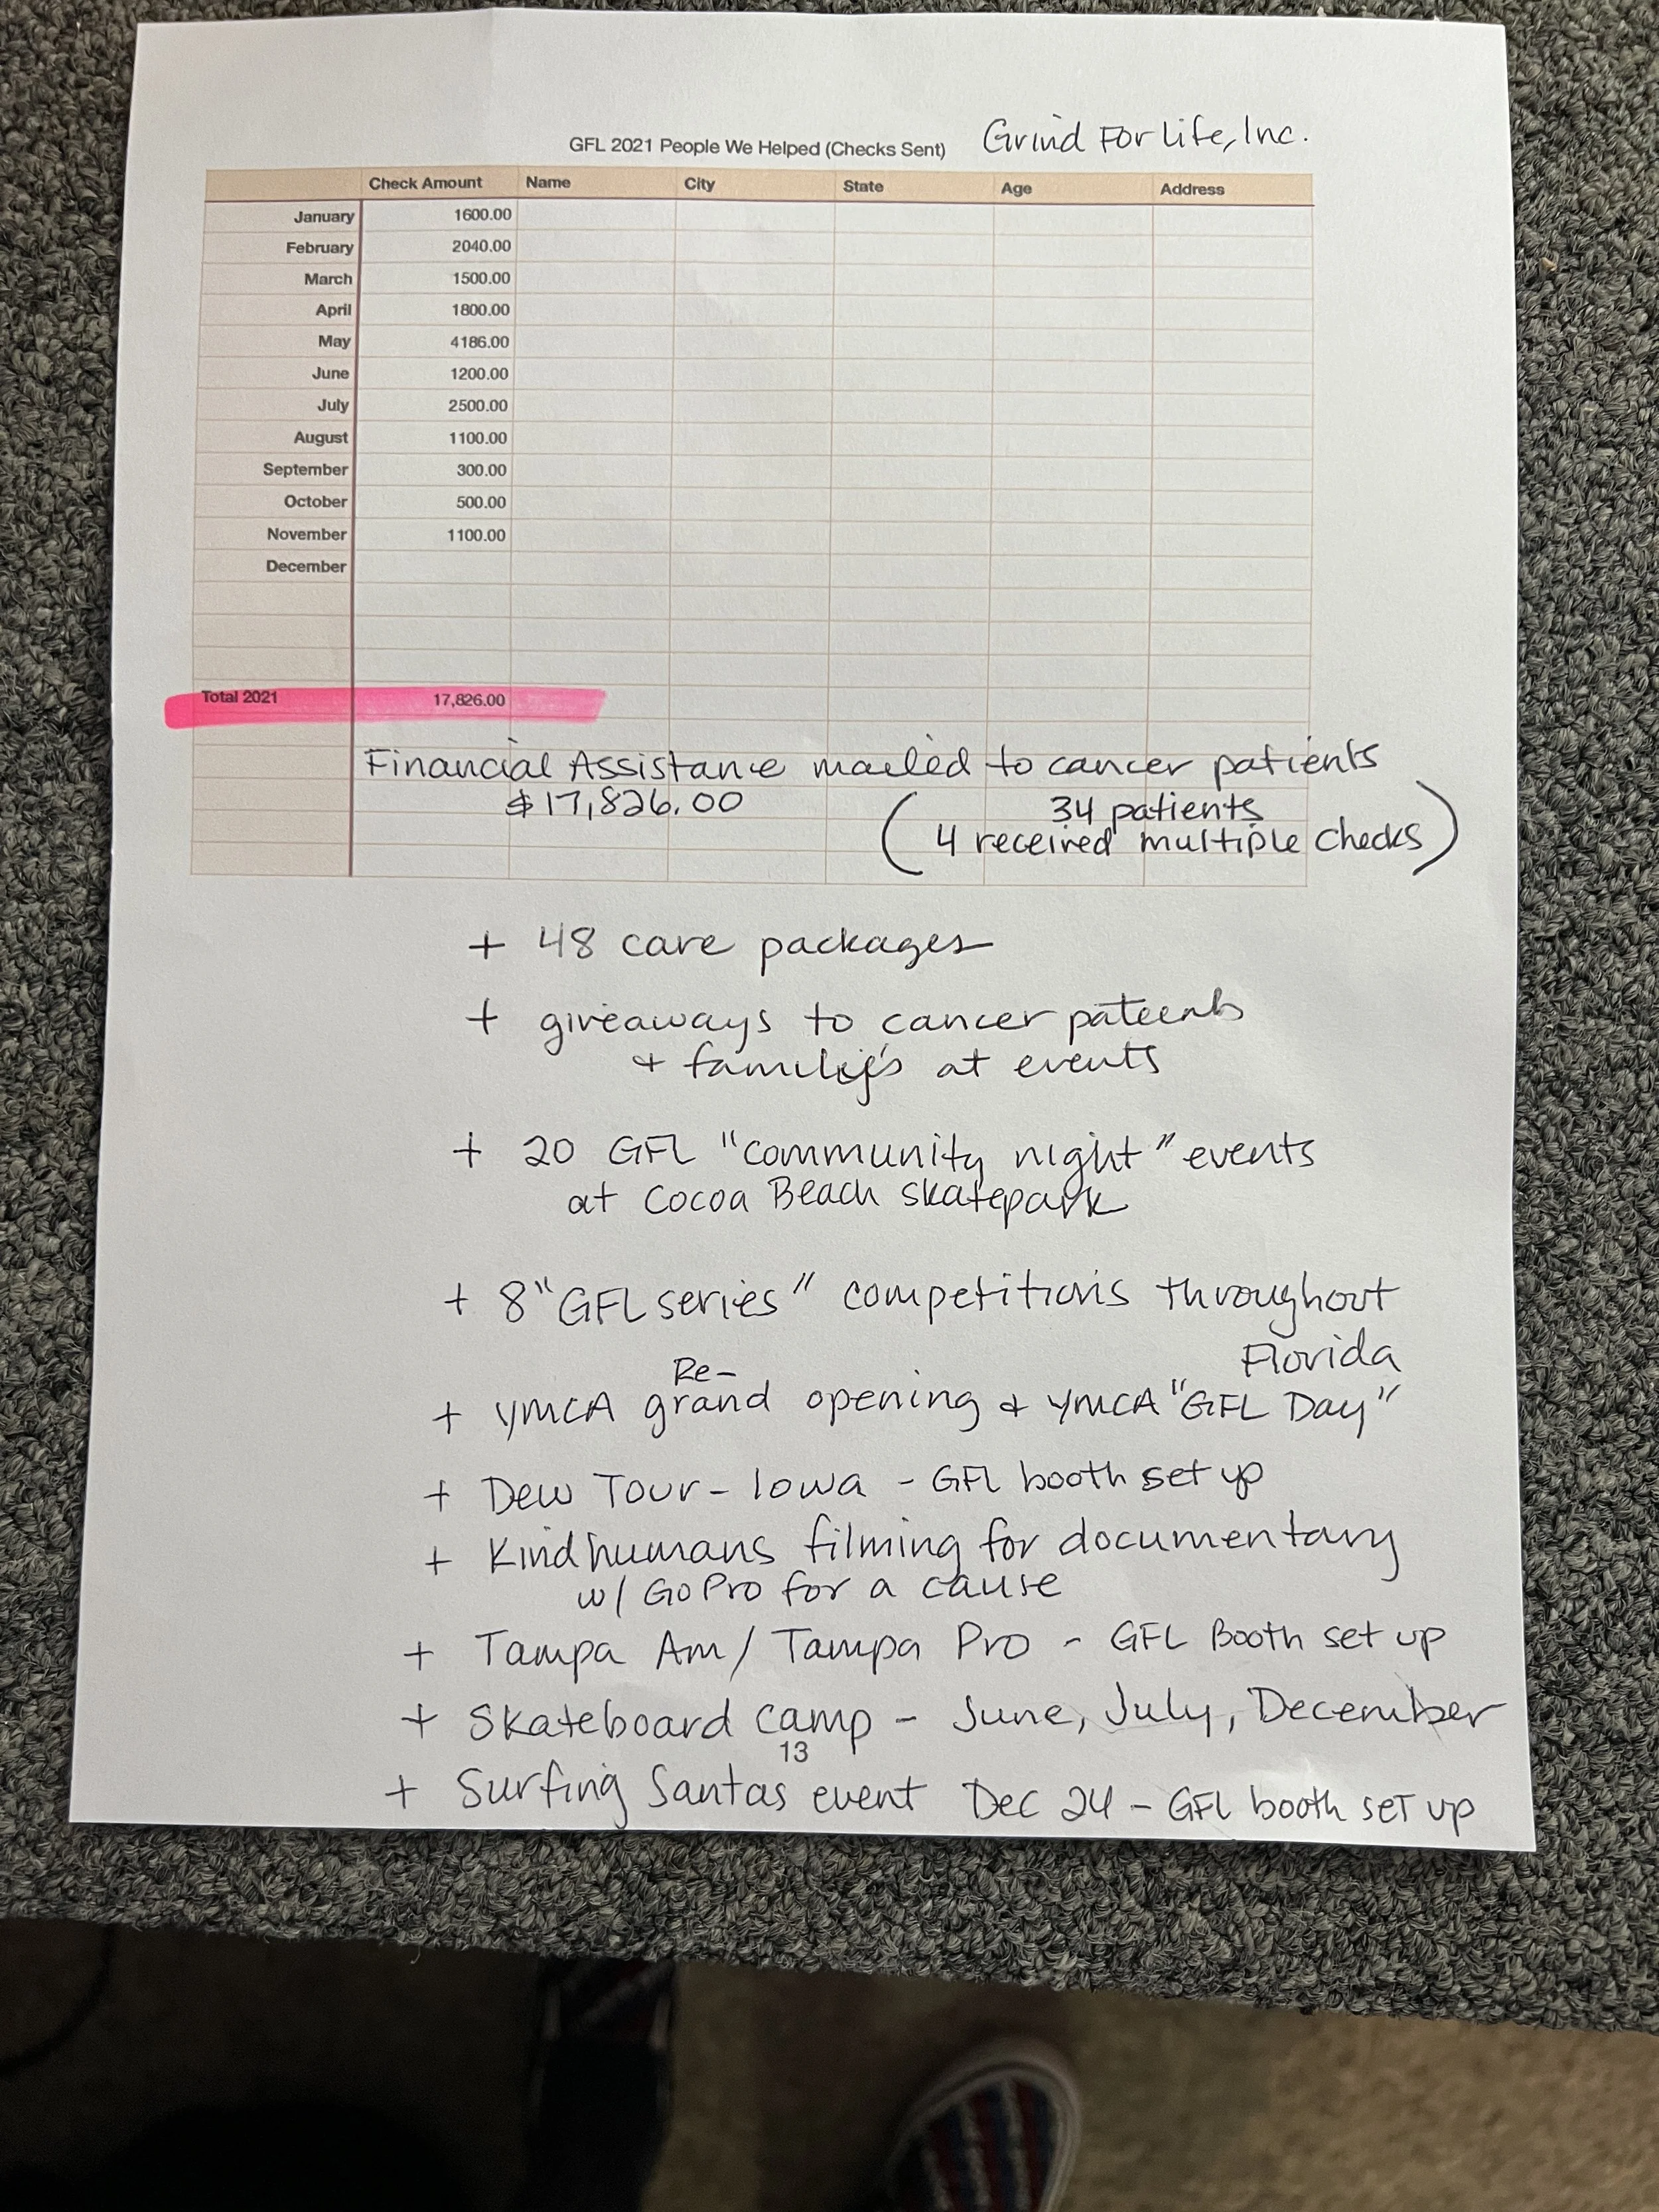 GFL 2021 People We Helped (Checks Sent) Grind For Life, Inc.
Check Amount Name City State Age Address
January 1600.00
February 2040.00
March 1500.00
April 1800.00
May 4186.00
June 1200.00
July 2500.00
August 1100.00
September 300.00
October 500.00
November 1100.00
December
Total 2021 17,826.00
Financial Assistance mailed to cancer patients
$17,826.00 (34 patients
4 received multiple checks)
+ 48 care packages
+ giveaways to cancer patients
+ families at events
+ 20 GFL "community night" events
at Cocoa Beach skatepark
+ 8 "GFL series" competitions throughout
Florida
Re-
+ YMCA grand opening + YMCA "GFL Day"
+ Dew Tour - Iowa - GFL booth set up
+ Kindhumans filming for documentary
w/ GoPro for a cause
+ Tampa Am / Tampa Pro - GFL Booth set up
+ Skateboard camp - June, July, December
13
+ Surfing Santas event Dec 24 - GFL booth set up